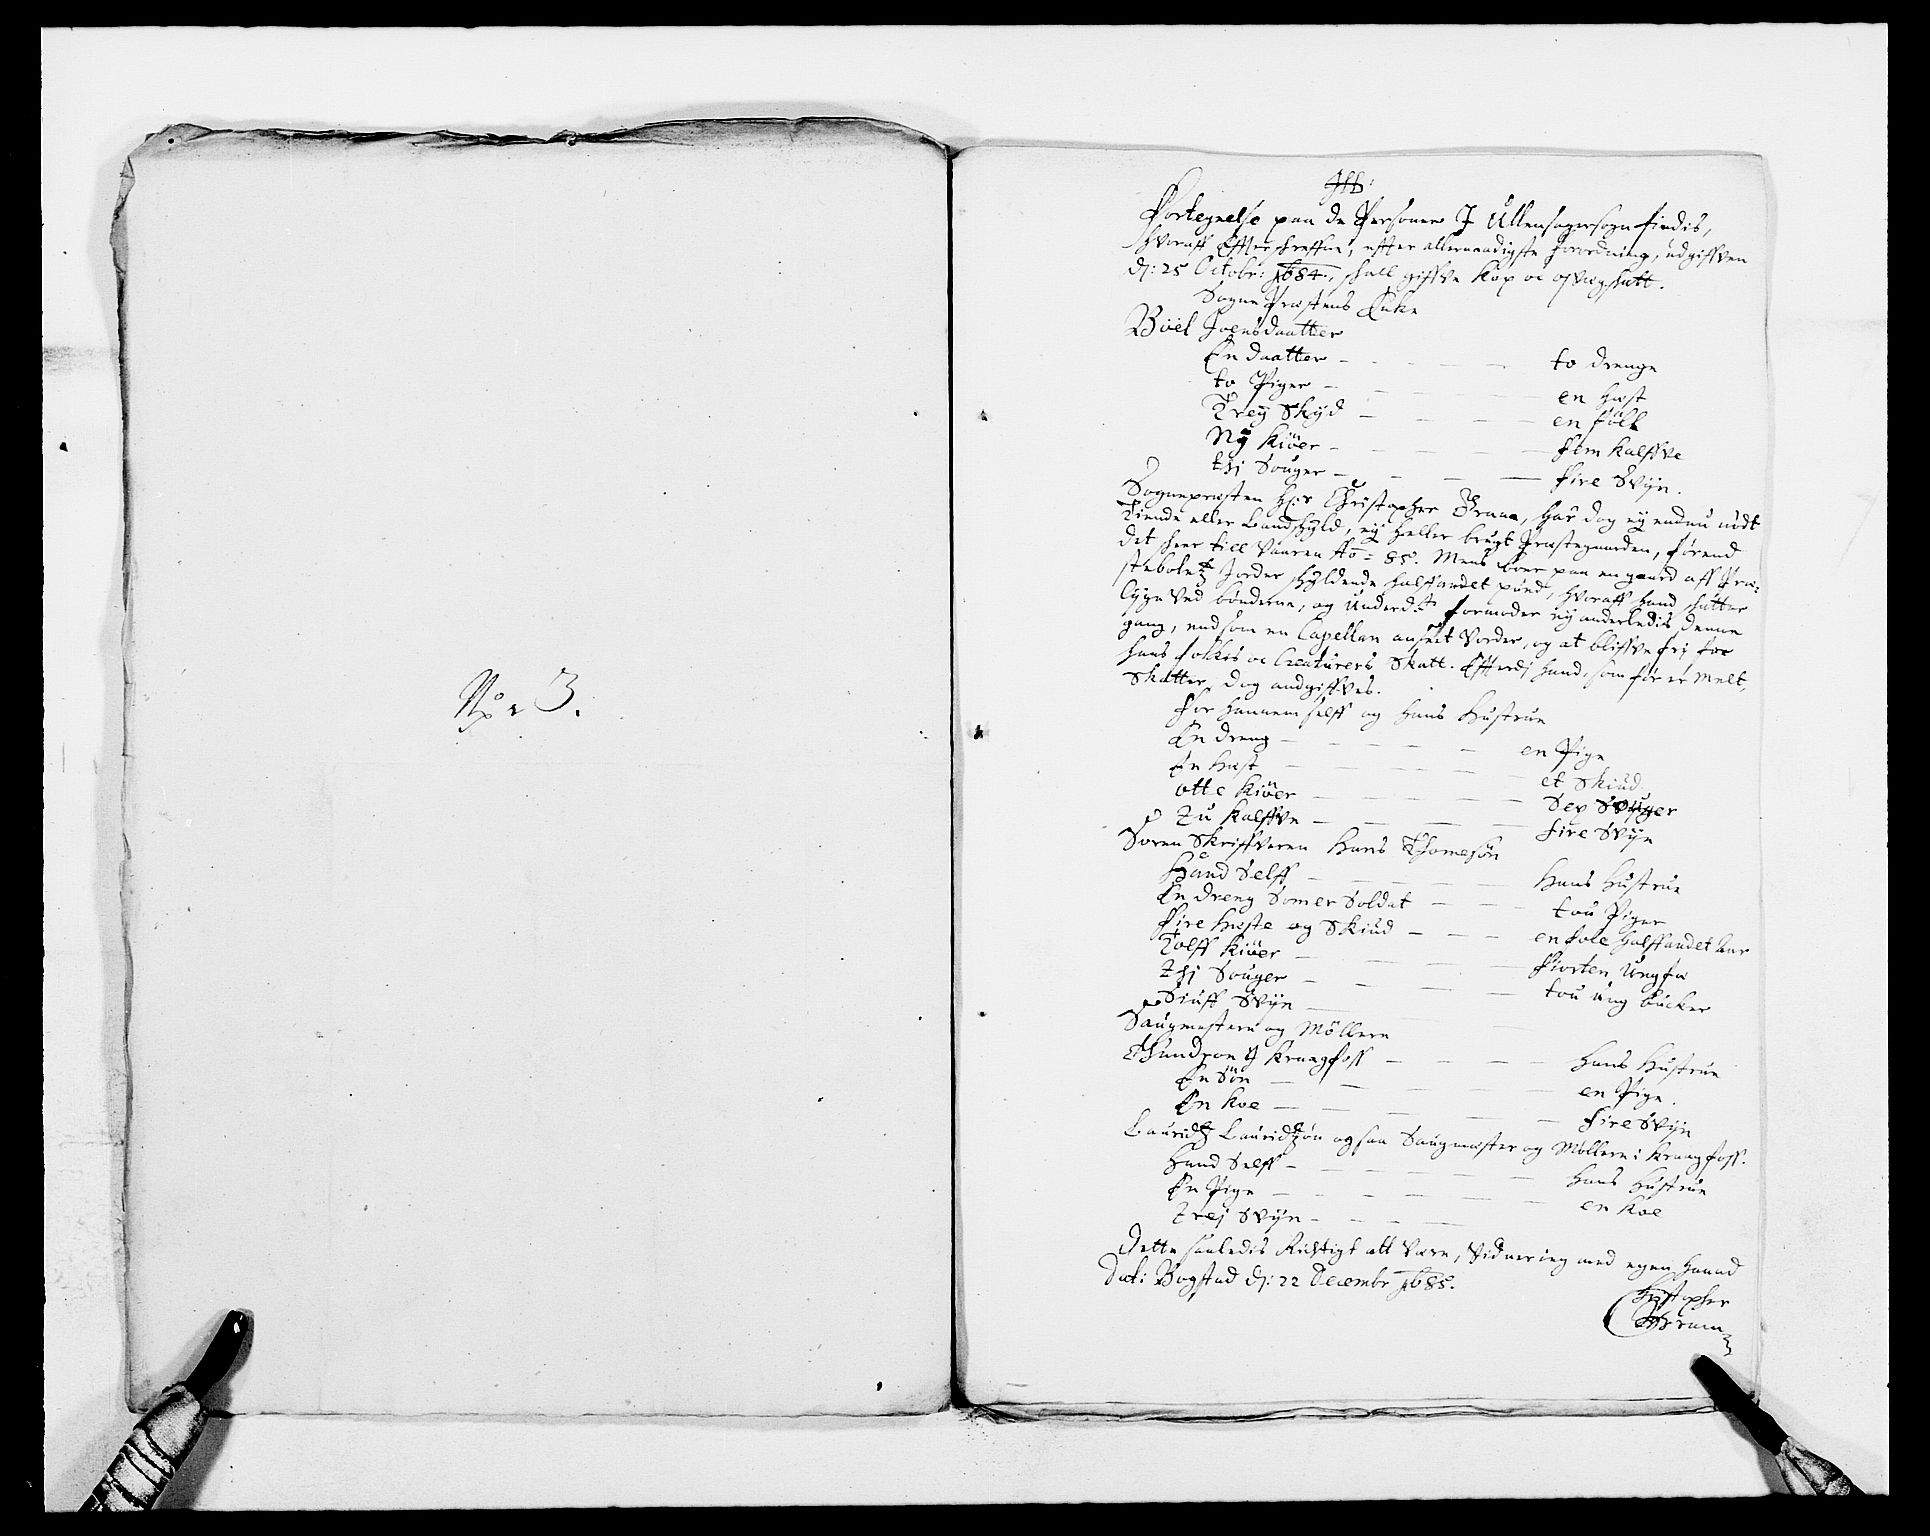 No 3.
Jhs:
Fortegnelse paa de Personer J Ullensagersogn findis,
hvoraff Effterschreffne, efter allernaadigste forordning, udgiffven
dj: 25 Octobr: 1684, skall giffve Kop oc qvægskatt.
Sogne Præstens Enke
Boel Joensdaatter
En daatter — to drenge
to Piger — en hæst
Trey Skyd — en föll
Ny kiöer — Fem kalffve
thj Souger — Fire Svijn.
Sognepræsten H: Christopher Hraae, har dog ey endnu nödt
Tiende eller Landskyld, eij heller brugt Præstegaarden, förend
det skeer till Vaaren Ao= 85. Mens boer paa en gaard aff Præ=
stebolets Jorder skyldende halffandet pund, hvoraff hand skatter
lige ved bönderne, og underd:t formoder eij anderledis denne
gang, end som en Capellan anseet vorder, og at bliffve frj for
hans folkis oc Creaturers Skatt. Effterdj hand, som för er melt,
Skatter, dog andgiffves.
For hannem selff og hans hustrue
En dreng — en Pige
En hæst — et Skiud
otte kiöer — Sex Souger
Tu kalffve — Fire Svijn
Soren Skriffveren Hans Thomesön
Hand Selff — Hans hustrue
En dreng Som er Soldat — tou Piger
Fire hæste og Skiud — en fole halffandet aar
Tolff kiöer — Fiorten Ungfæ
thj Souger — tou ung bucker
Siuff Svijn
Saugmestere og Möllere
Amund paa Kraagfoss — Hans Hustrue
En Sön — en Pige.
En koe — Fire Svijn
Lauridtz Lauridtzön ogsaa Saugmæster og Möller i Kraagfoss.
Hand Selff — Hans Hustrue
En Pige — en koe
Trej Svijn
Dette saaledis Richtigt att være, vidner jeg med egen haand
Dat: Bogstad dj: 22 Decembr 1685.
Christopher
Hraae